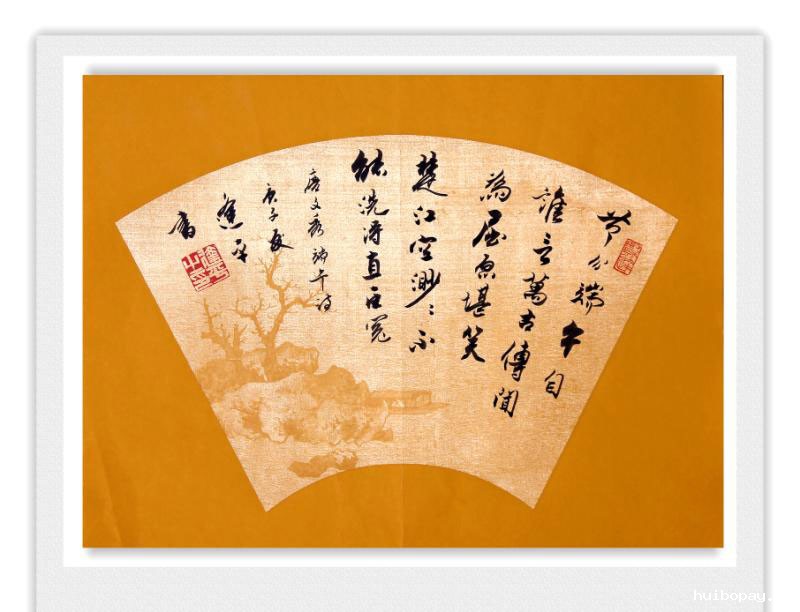 节分端午自
誰言萬古傳聞
為屈原堪笑
楚江空渺渺不
能洗得直臣冤
唐文秀端午诗
庚子夏
平
書
huibopay.